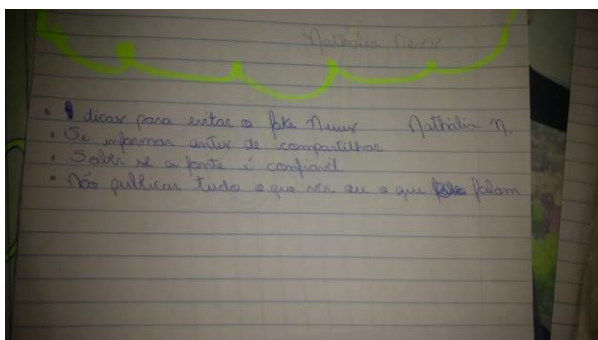 Nathalia Neves
• dicas para evitar o fake News Nathália N.
• Se informar antes de compartilhar
• Saber se a fonte é confiavél
• Não publicar tudo o que ver ou o que falam